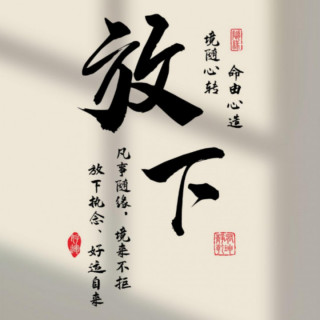 放下
命由心造
境随心转
凡事随缘，境来不拒
放下执念、好运自来